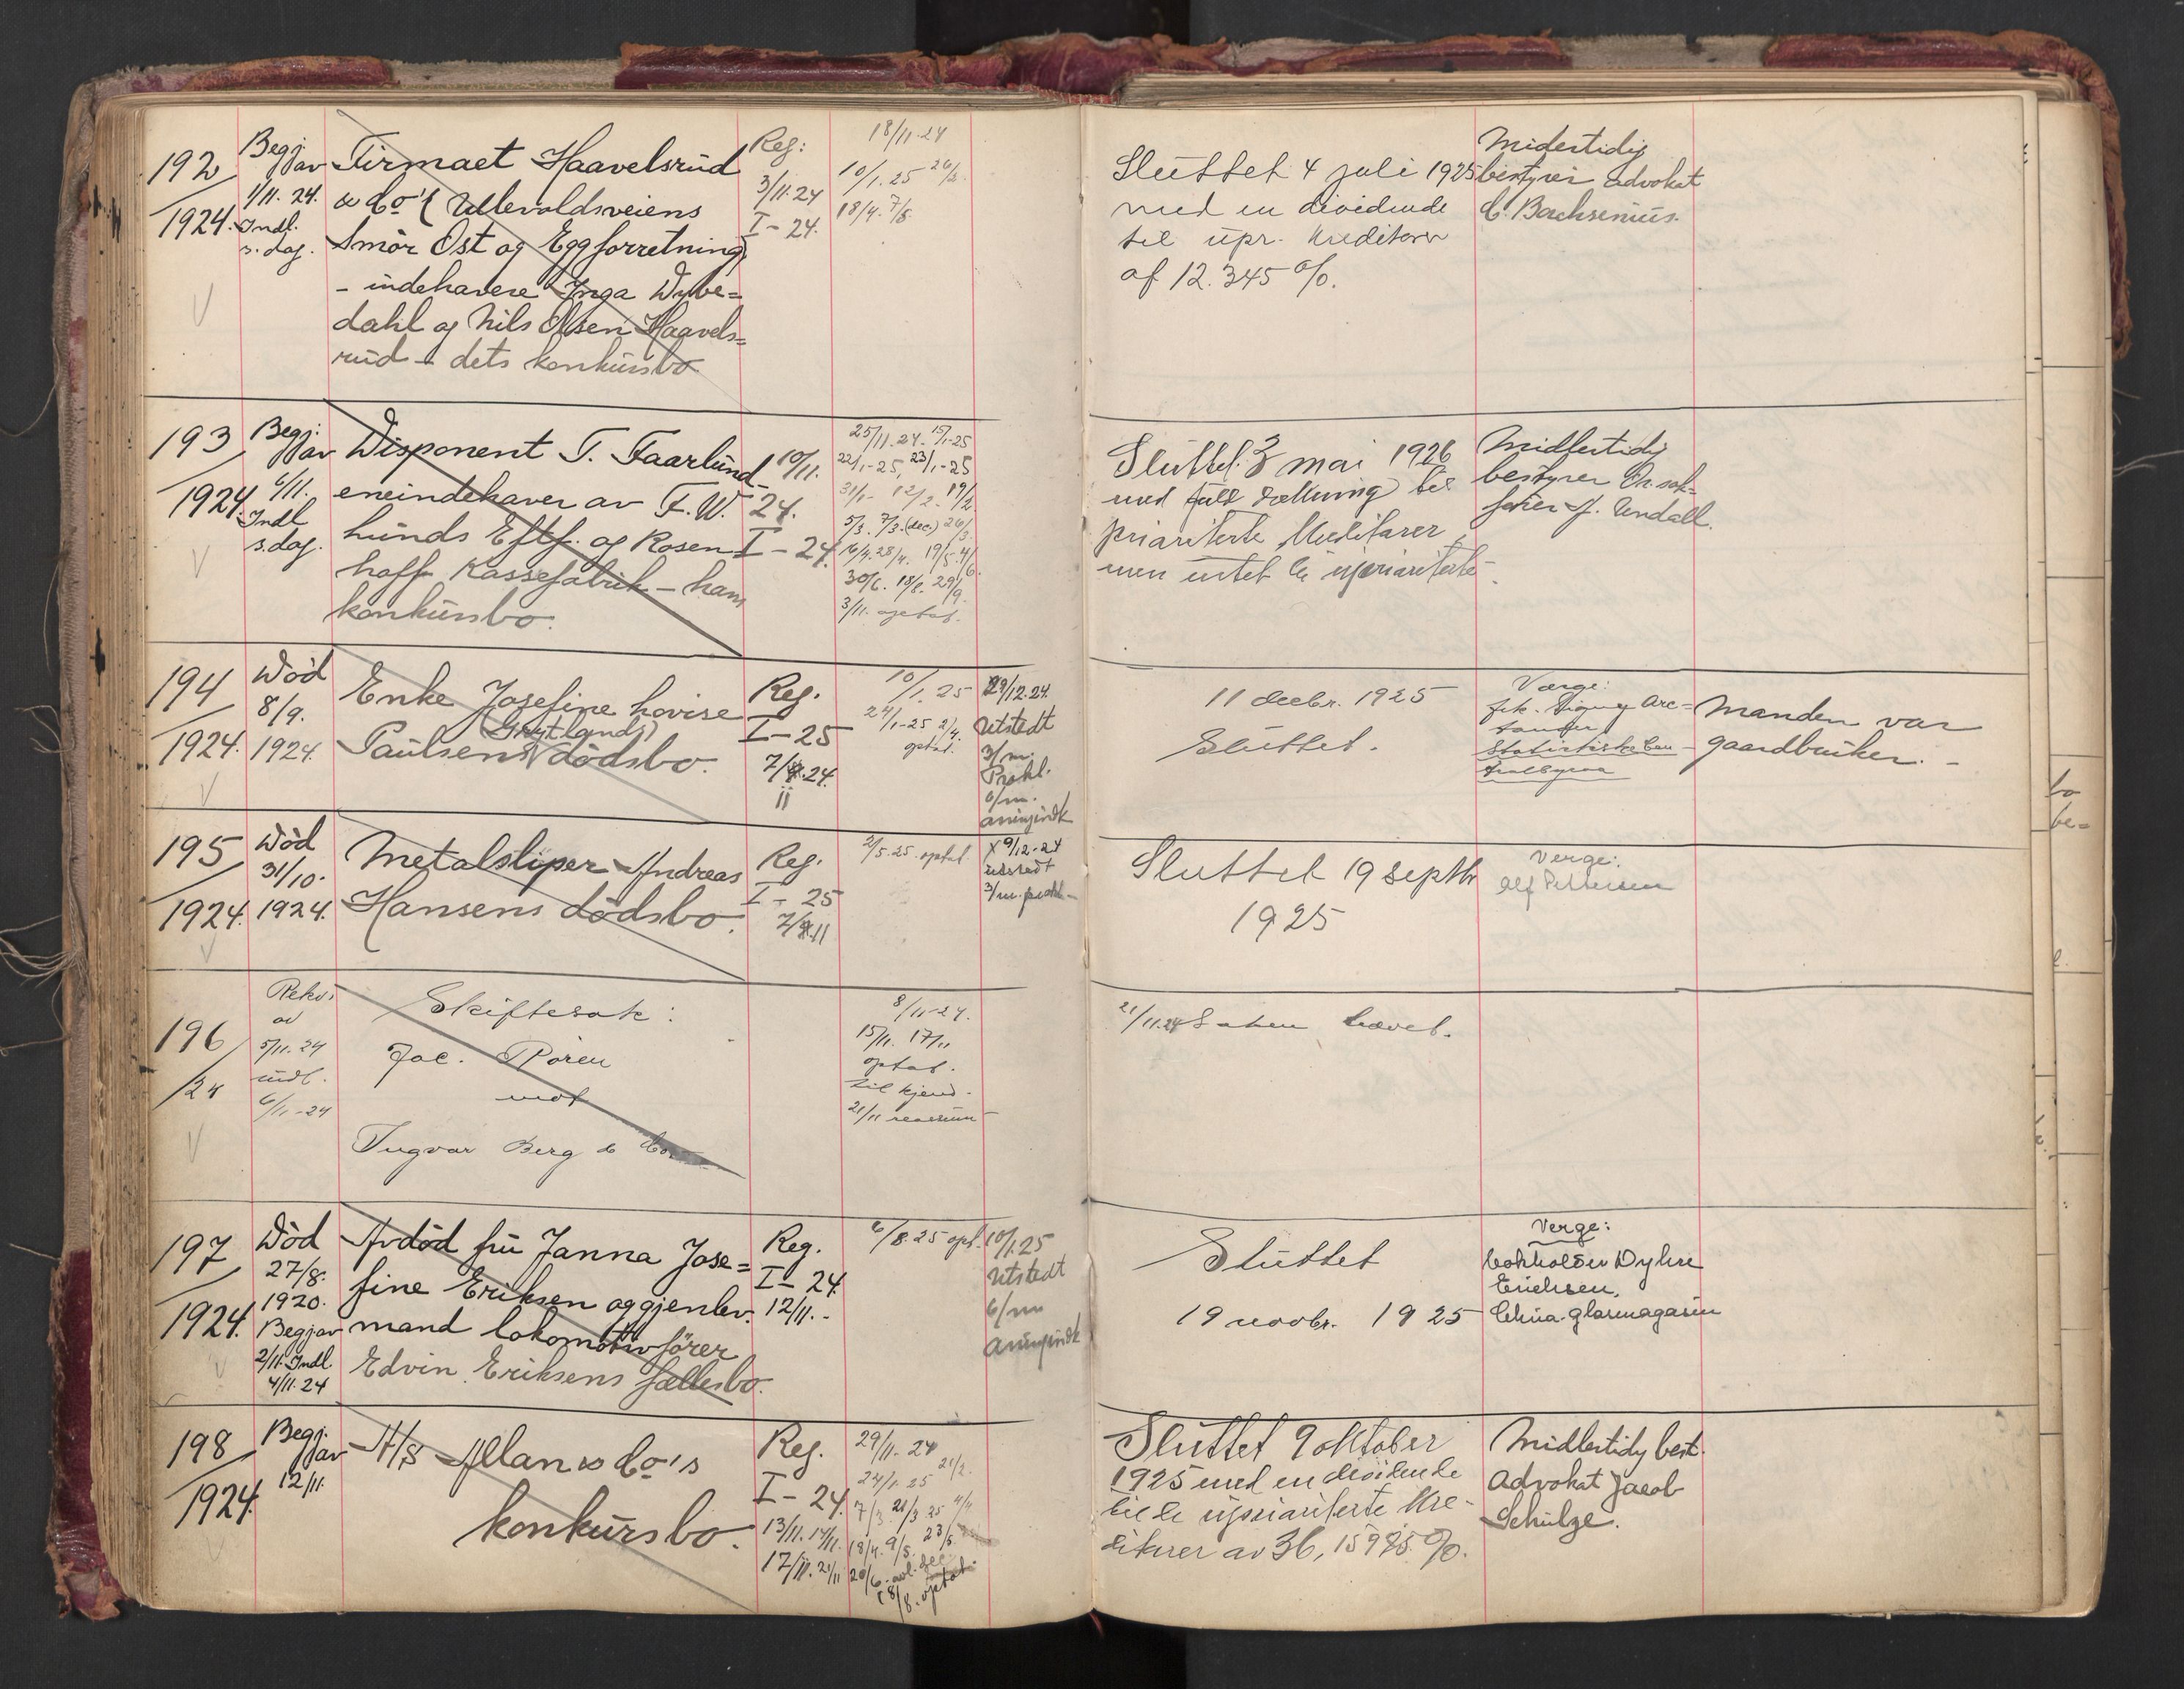 192
1924.
Begj.
av
1/11. 24.
Indl.
s. dag.
Firmaet Haavelsrud
& Co's (Ullevoldsveiens
Smör Ost og Eggforretning)
- indehavere Inga Dybe=
dahl og Nils Olsen Haavels=
rud - dets konkursbo
Reg:
3/11.24
I - 24.
18/11.24
10/1.25 24/2
18/4. 7/5.
Sluttet 4 juli 1925
med en dividende
til upr. kreditorer
af 12.345 %.
Midertidig
bestyrer advokat
C. Bachsenius.
193
1924.
Begj:
av
6/11.
Indl
s. dag.
Disponent T. Faarlund
eneindehaver av F. W.
Lunds Eftf. og Rosen
hoff Kassefabrik - hans
konkursbo.
10/11.
24.
I - 24.
25/11.24. 15/1-25
22/1-25, 23/1-25
31/1- 12/2. 19/2
5/3. 7/3. (dec) 26/3.
16/4. 28/4. 19/5. 4/6.
30/6. 18/8. 29/9.
3/11. optat.
Sluttet. 3 mai 1926
med full dækning til
prioriterte kreditorer
men intet til uprioriterte.
Midlertidig
bestyrer Or. sak=
fører J. Endall.
194
1924.
Död
8/9.
1924.
Enke Josefine Lovise
(Grytlands)
Paulsens dödsbo.
Reg.
I - 25
7/8.24.
11
10/1.25
24/1-25 2/4.
optat.
29/12.24.
Utstedt
3/m.
Prokl.
6/m.
11 decbr. 1925
Sluttet.
Værge:
Manden var
gaardbruker. -
195
1924.
Död
31/10.
1924.
Metalsliper Andreas
Hansens dödsbo.
Reg.
I - 25
7/8.11
2/5.25. optat.
x 9/12.24
utstedt
3/m. prokl-
Sluttet 19 septbr
1925
Verge:
Alf Pettersen
196
/24
Rekv.
av
5/11.24
indl.
6/11-24
Skiftesak:
Jac. Roren
mot
Ingvar Berg & Co.
8/11-24.
15/11. 17/11
optat.
til kjend.
21/11
21/11.24 Saken hævet.
197
1924.
Död
27/8.
1920.
Begj av
2/11. Indl.
4/11.24
Avdöd fru Janna Jose=
fine Eriksen og gjenlev.
mand lokomotivförer
Edvin Eriksens fællesbo.
Reg.
I - 24.
12/11. -
6/8.25 opt.
10/1.25
Utstedt
6/m
Sluttet
19 novbr. 1925
Verge:
Bokholder Dyhre
Erichsen,
China-glasmagasin
198
1924.
Begj.
av
12/11.
A/S Allan & Co's
konkursbo.
Reg.
I - 24.
13/11. 14/11.
17/11. 21/11
29/11. 24
24/1. 25 21/2.
7/3. 21/3. 25 4/4
18/4. 9/5. 23/5.
20/6.
18/8. optat.
Sluttet 9 oktober
1925 med en dividende
til de uprioriterte kre-
ditorer av 36,15975 %.
Midlertidig best.
Advokat Jacob
Schulze.